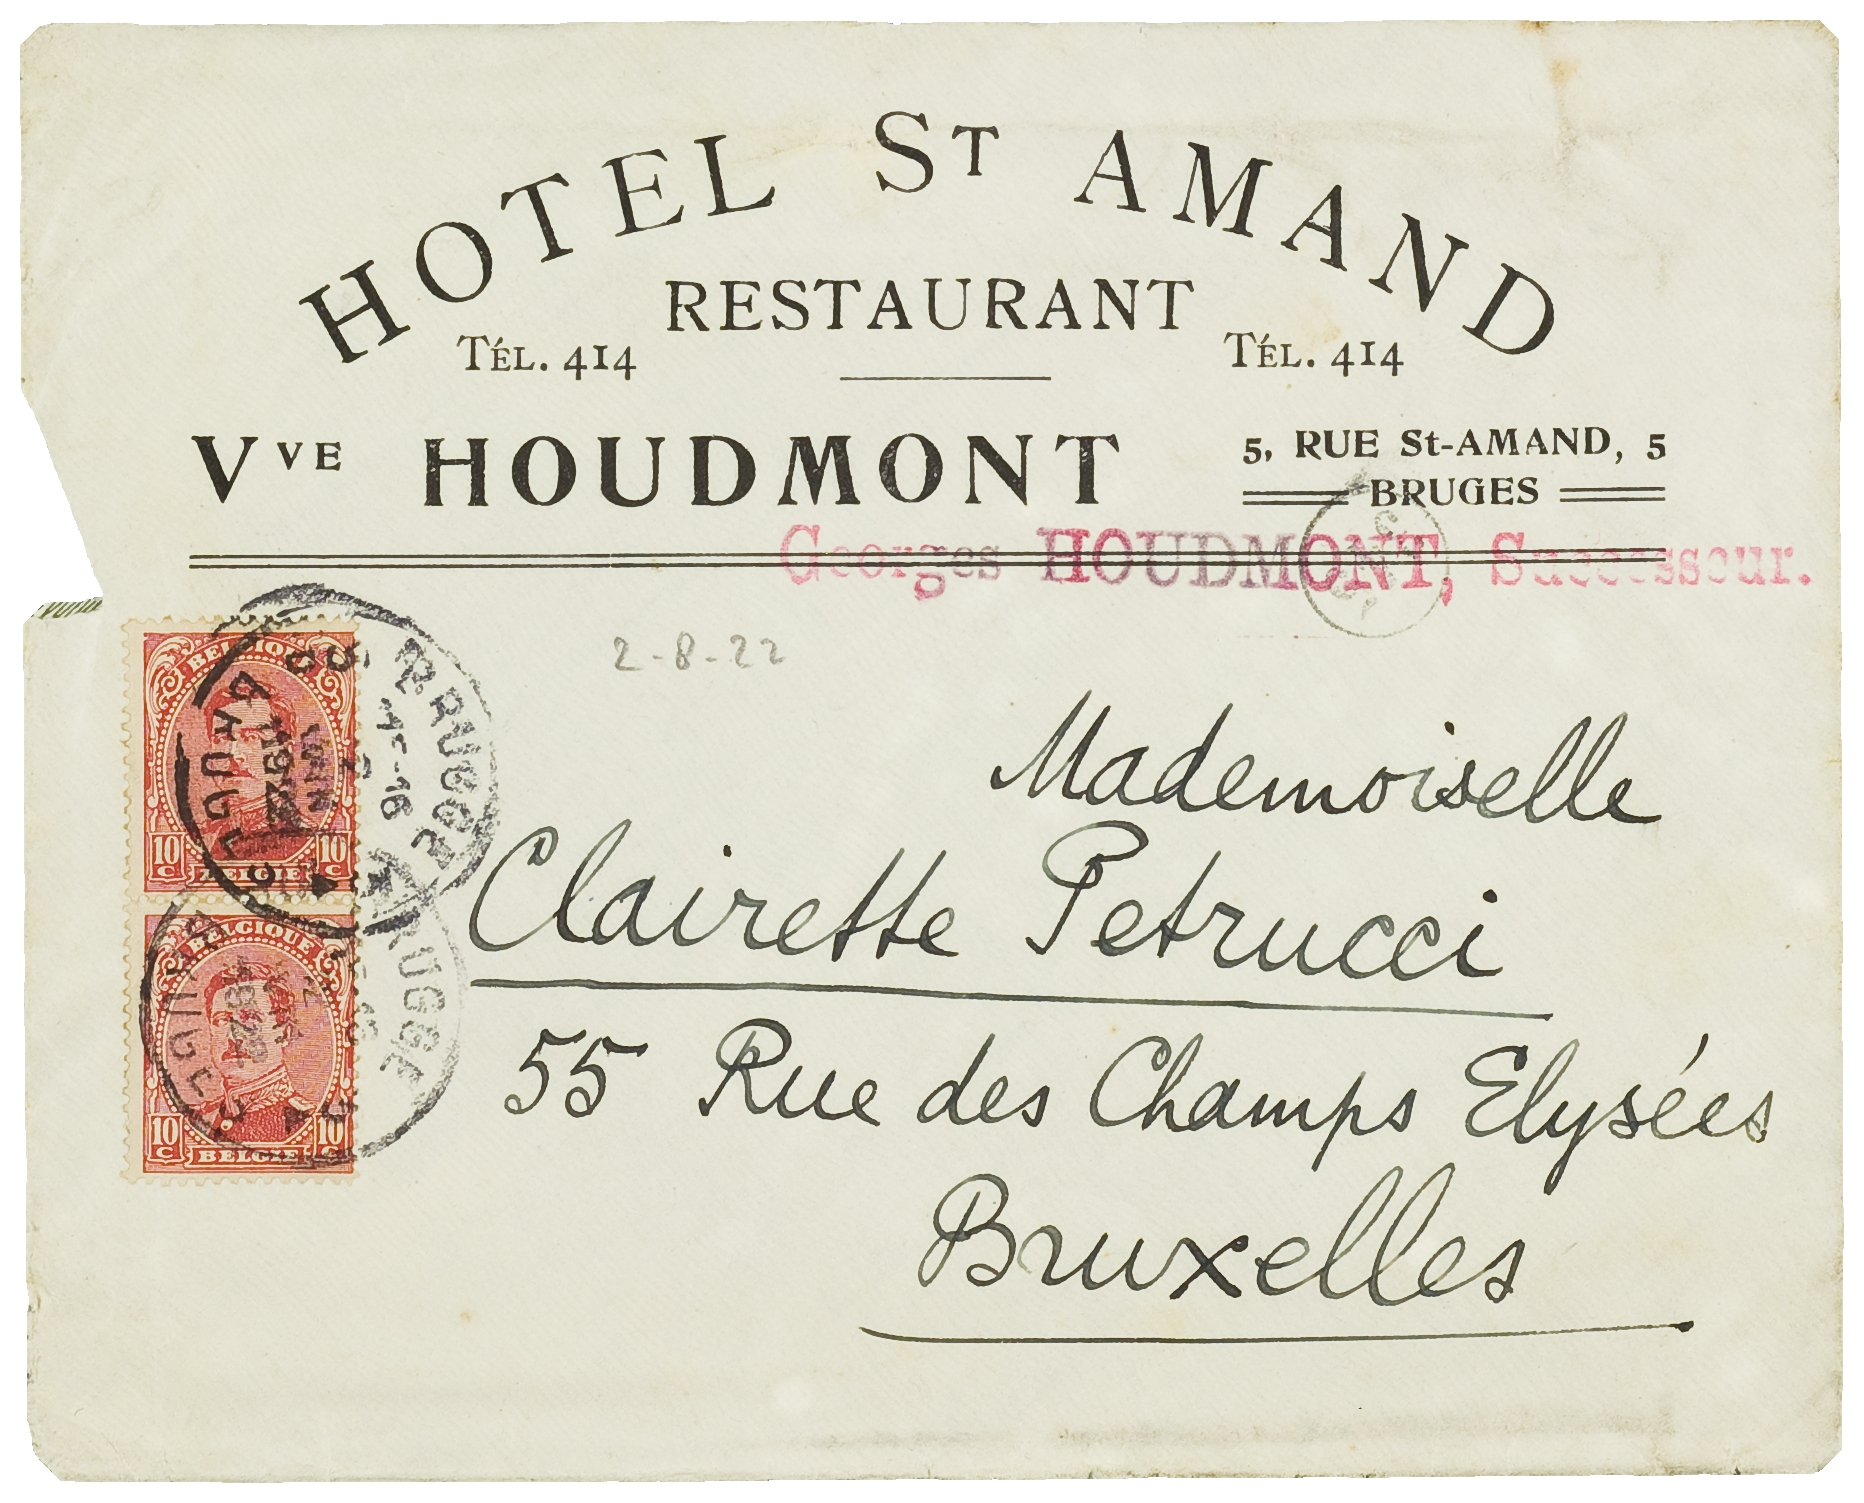 HOTEL ST AMAND
RESTAURANT
TÉL. 414 TÉL. 414
VVE HOUDMONT
5, RUE St-AMAND, 5
BRUGES
Georges HOUDMONT, Successeur.
2-8-22
BELGIQUE
10 C 10 C
BELGIË
BELGIQUE
10 C 10 C
BELGIË
BRUGGE
BRUGGE
Mademoiselle
Clairette Petrucci
55 Rue des Champs Elysées
Bruxelles